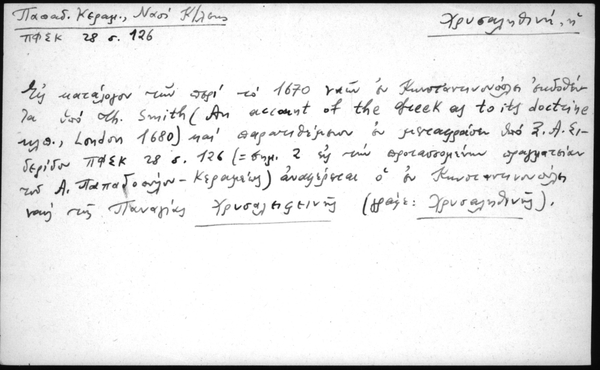 Παπαδ. Κεραμ., Ναοί Κ/λεως
Χρυσαληθινή, ἡ
ΠΦΣΚ 28 σ. 126
Εἰς κατάλογον τῶν περί τό 1670 ναῶν ἐν Κωνσταντινουπόλει ἐκδοθέν-
τα ὑπό Th. Smith (An account of the Greek as to its doctrine
κλπ., London 1680) καί παρατιθέμενον ἐν μεταφράσει ὑπό Ξ. Α. Σι-
δερίδου ΠΦΣΚ 28 σ. 126 (= σημ. 2 εἰς τήν προτασσομένην πραγματείαν
τοῦ Α. Παπαδοπούλου-Κεραμέως) ἀναφέρεται ὁ ἐν Κωνσταντινουπόλει
ναός τῆς Παναγίας Χρυσαλειφεινῆς (γράφε: Χρυσαληθινῆς).